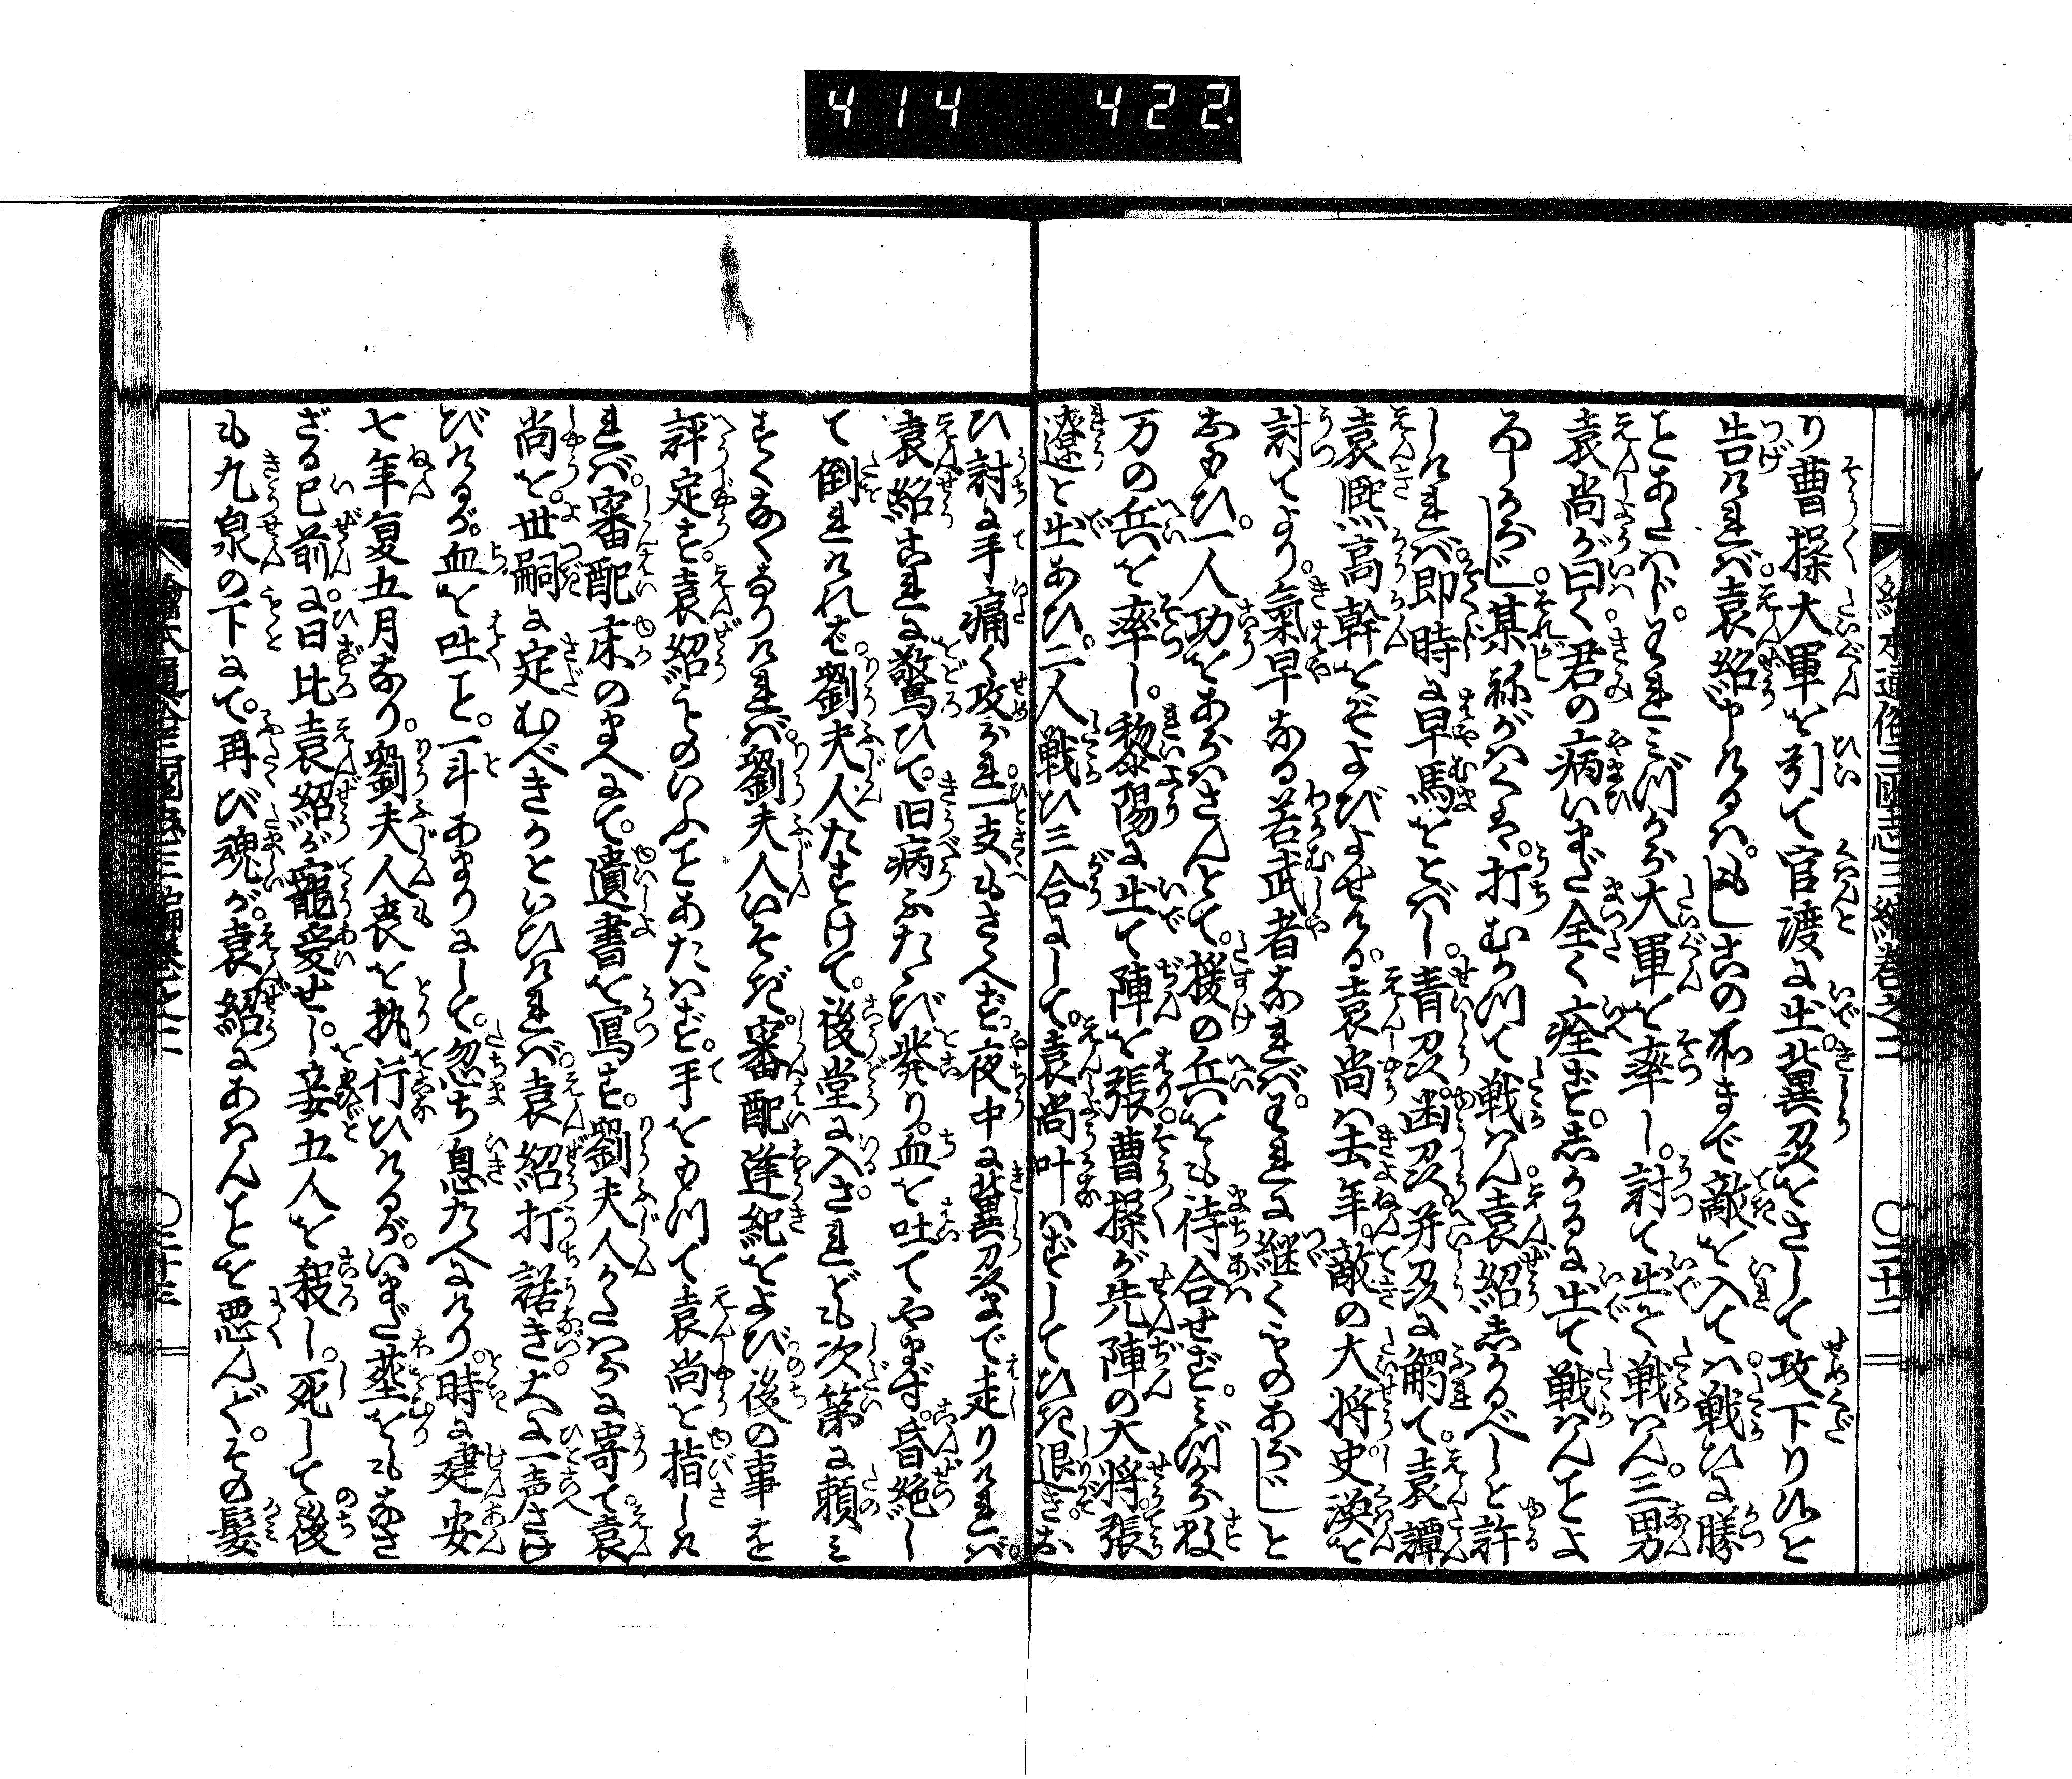 414 422.
絵本通俗三国志三編巻之二 〇二十二
り曹操大軍を引て官渡に出冀州をさして攻下り候と
告ければ袁紹申けるはもしこの所まで敵を入ては戦ひに勝
ことあたはじわれみづから大軍を率し討て出て戦はん三男
袁尚が曰く君の病いまだ全く痊ずしかるに出て戦はんことよ
ろしからじ某ねがはくは打むかつて戦はん袁紹しかるべしと許
しければ即時に早馬をとばし青州幽州并州に觸て袁譚
袁煕高幹をぞよびよせける袁尚は去年敵の大将史渙を
討てより氣早なる若武者なればわれに継くものあらじと
おもひ一人功をあらはさんとて援の兵をも待合せずみづから数
万の兵を率し黎陽に出て陣を張曹操が先陣の大将張
遼と出あひ二人戦ひ三合にして袁尚叶はずしてひき退きお
ひ討に手痛く攻られ一支もささへず夜中に冀州まで走りければ
袁紹これに驚ひて旧病ふたゝび発り血を吐てやまず昏絶し
て倒れければ劉夫人たすけて後堂に入されども次第に頼み
すくなくなりければ劉夫人いそぎ審配逢紀をよび後の事を
評定す袁紹ものいふことあたはず手をもつて袁尚を指しけ
れば審配床のまへにて遺書を寫す劉夫人かたはらに寄て袁
尚を世嗣に定むべきかといひければ袁紹打諾き大に一声さけ
びけるが血を吐こと一斗あまりにして忽ち息たへにけり時に建安
七年夏五月なり劉夫人喪を執行ひけるがいまだ葬をもなさ
ざる已前に日比袁紹が寵愛せし妾五人を殺し死して後
も九泉の下にて再び魂が袁紹にあはんことを悪んぞその髪